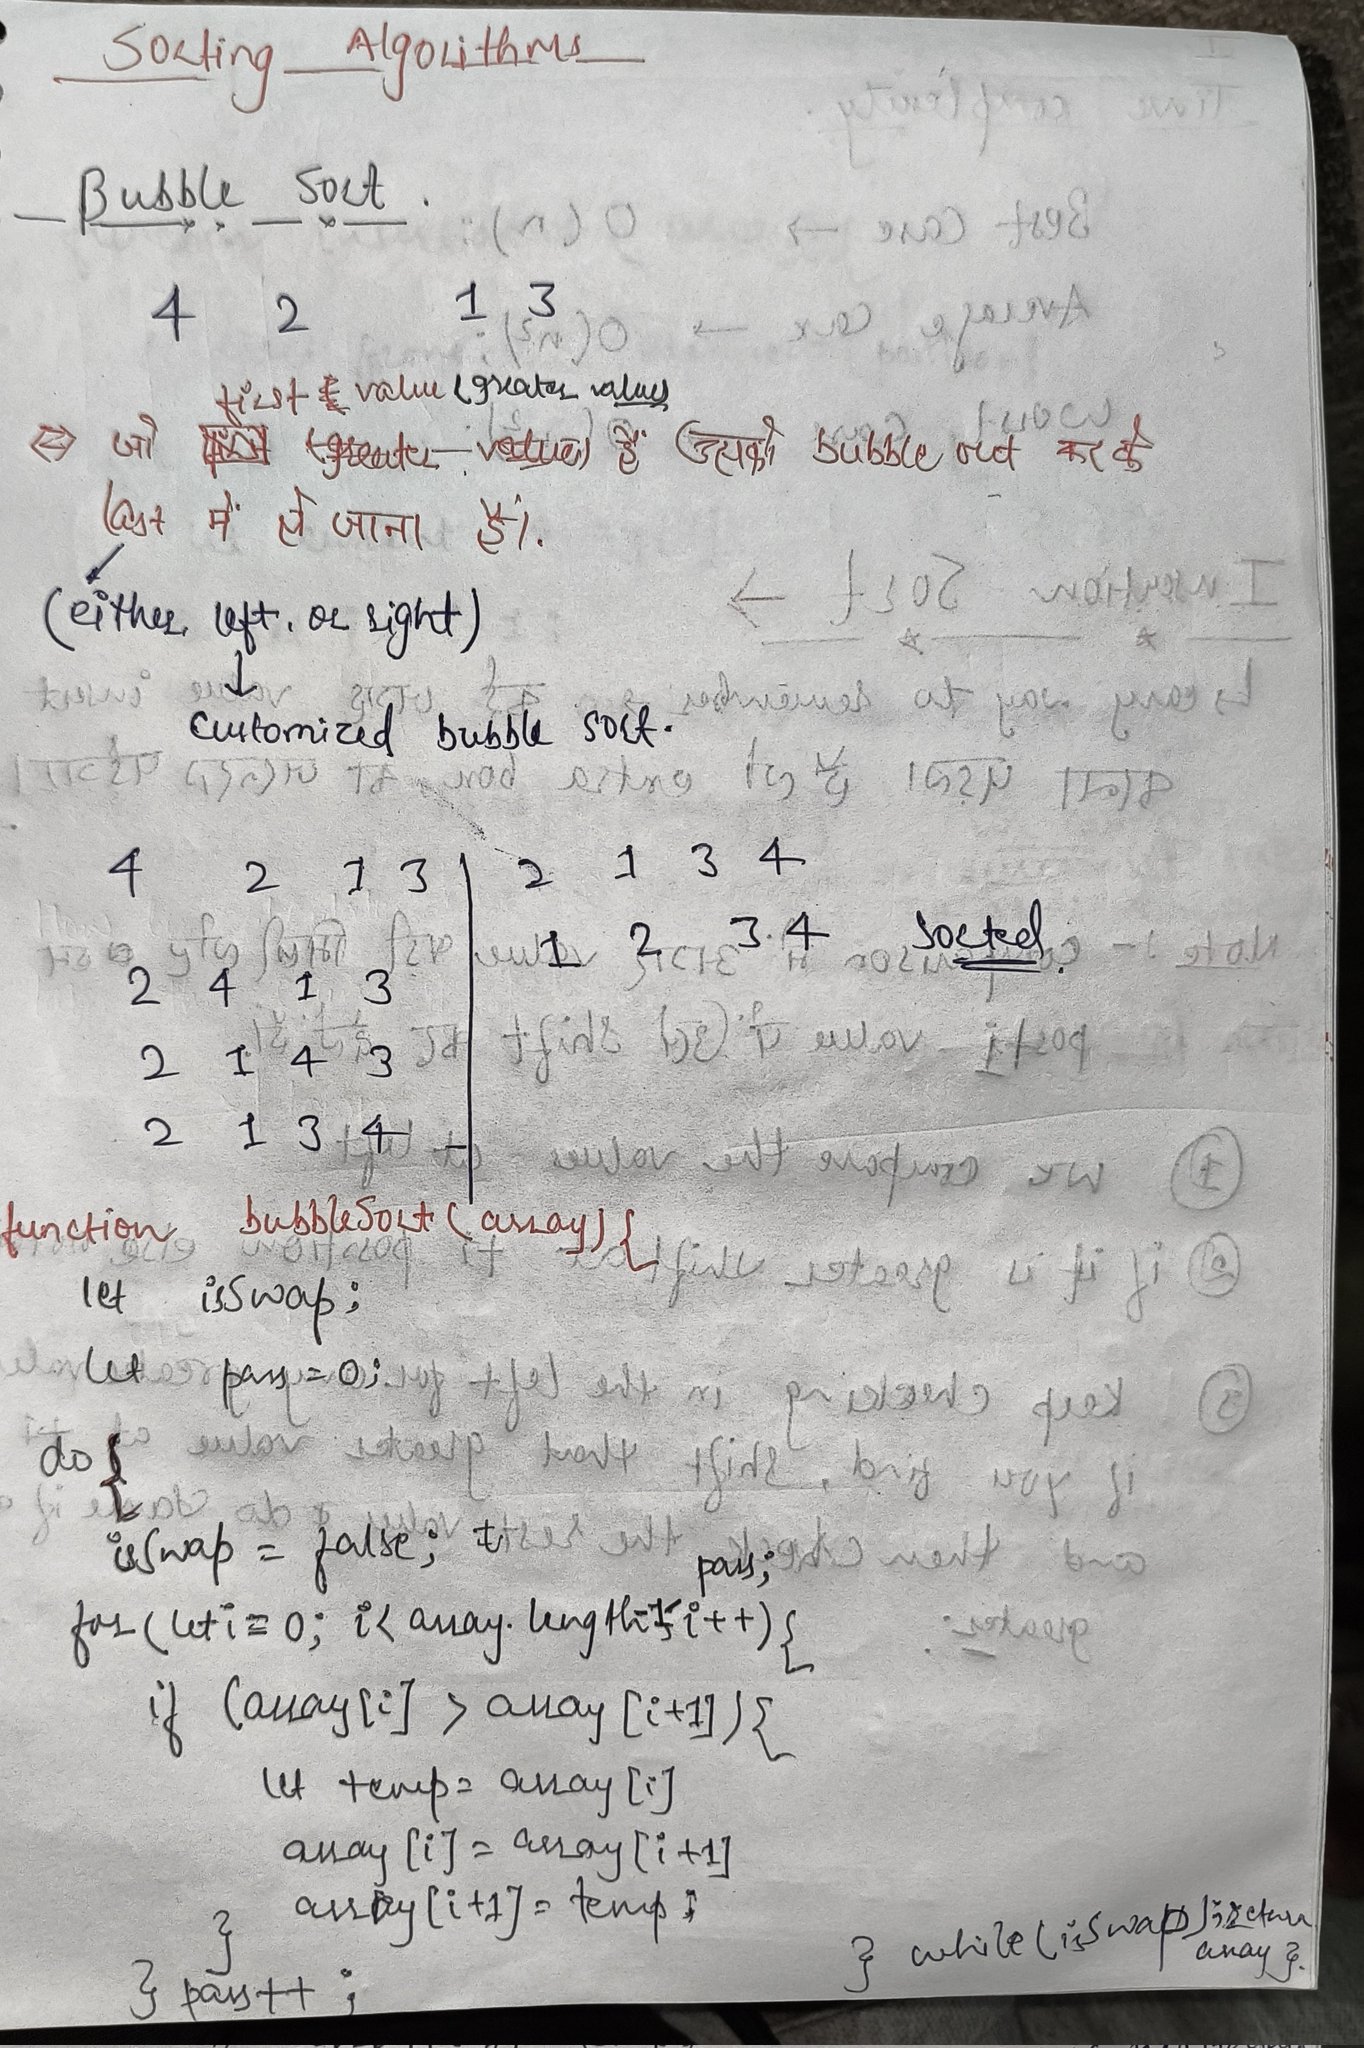 Sorting Algorithms
Bubble Sort.
4 2 1 3
first value (greater value)
⇔ जो (greater value) है उसको bubble out कर के
last में ले जाना है।.
(either left. or right)
↓
customized bubble sort.
4 2 1 3
2 4 1 3
2 1 4 3
2 1 3 4
2 1 3 4
1 2 3 4 Sorted.
function bubbleSort(array){
let isSwap;
let pass=0;
do{
isSwap = false;
pass;
for(let i=0; i<array.length-1-i++){
if (array[i] > array[i+1]){
let temp= array[i]
array[i]= array[i+1]
array[i+1]= temp;
}
} pass++;
} while(isSwap); return
array }.